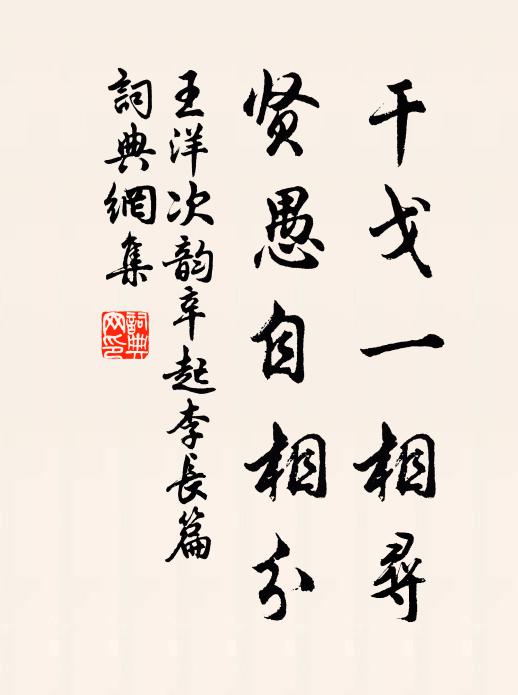 干戈一相尋
贤愚自相分
王洋次韵辛起李長篇
詞典網集
詞典